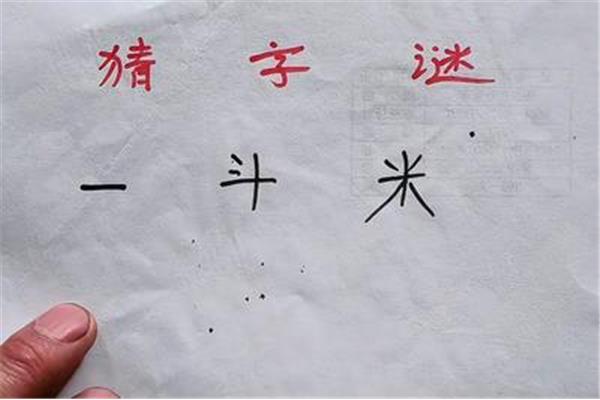 猜字谜
一斗米